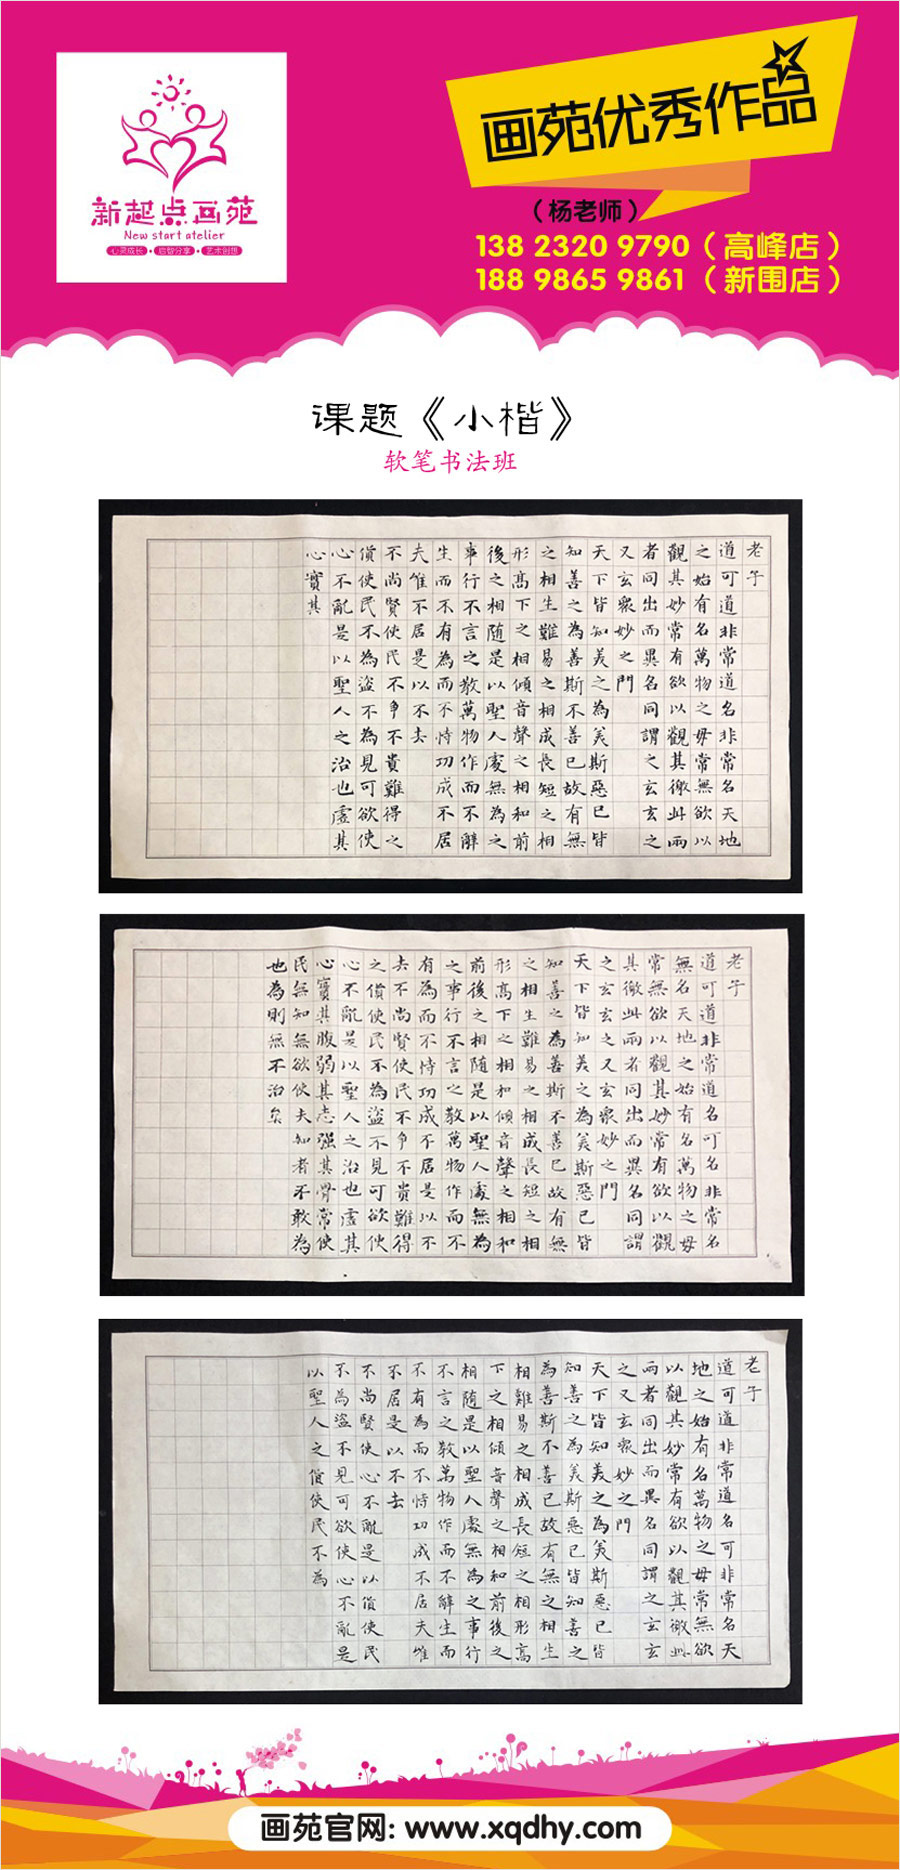 新起点画苑
New start atelier
心灵成长·启智分享·艺术创想
画苑优秀作品
（杨老师）
138 2320 9790（高峰店）
188 9865 9861（新围店）
课题《小楷》
软笔书法班
老子
道可道非常道名非常名天地
之始有名萬物之母常無欲以
觀其妙常有欲以觀其徼此兩
者同出而異名同謂之玄玄之
又玄衆妙之門
天下皆知美之為美斯惡已皆
知善之為善斯不善已故有無
之相生難易之相成長短之相
形高下之相傾音聲之相和前
後之相随是以聖人處無為之
事行不言之教萬物作而不辭
生而不有為而不恃功成不居
夫惟不居是以不去
不尚賢使民不争不貴難得之
貨使民不為盜不為見可欲使
心不亂是以聖人之治也虛其
心實其
老子
道可道非常道名可名非常名
無名天地之始有名萬物之母
常無欲以觀其妙常有欲以觀
其徼此兩者同出而異名同謂
之玄玄之又玄衆妙之門
天下皆知美之為美斯惡已皆
知善之為善斯不善已故有無
之相生難易之相成長短之相
形高下之相和傾音聲之相和
前後之相随是以聖人處無為
之事行不言之教萬物作而不
有為而不恃功成不居是以不
去不尚賢使民不争不貴難得
之貨使民不為盜不見可欲使
心不亂是以聖人之治也虛其
心實其腹弱其志强其骨常使
民無知無欲使夫知者不敢為
也為則無不治矣
老子
道可道非常道名可非常名天
地之始有名萬物之母常無欲
以觀其妙常有欲以觀其徼此
兩者同出而異名同謂之玄玄
之又玄衆妙之門
天下皆知美之為美斯惡已皆
知善之為美斯惡已皆知善之
為善斯不善已故有無之相生
相難易之相成長短之相形高
下之相傾音聲之相和前後之
相随是以聖人處無為之事行
不言之教萬物作而不辭生而
不有為而不恃功成不居夫惟
不居是以不去
不尚賢使心不亂是以貨使民
不為盜不見可欲使心不亂是
以聖人之貨使民不為
画苑官网: www.xqdhy.com